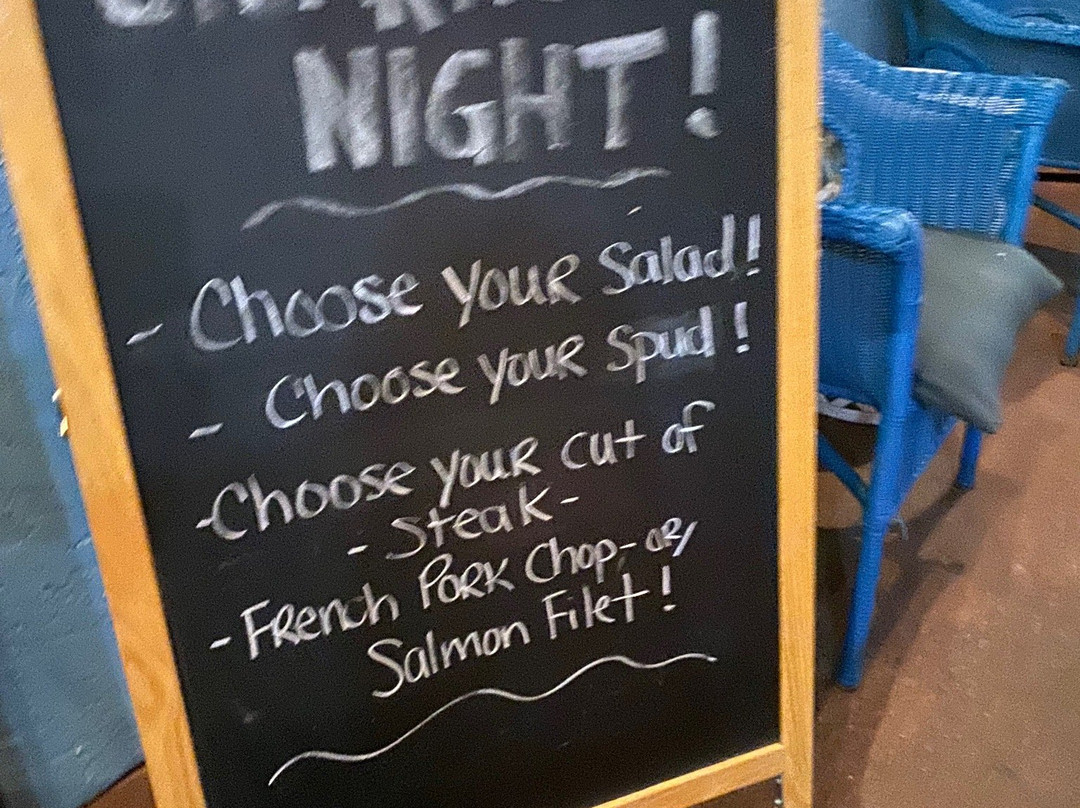 NIGHT!
- Choose your Salad!
- Choose your Spud!
- Choose your cut of
- Steak -
- French Pork Chop - or
Salmon Filet!